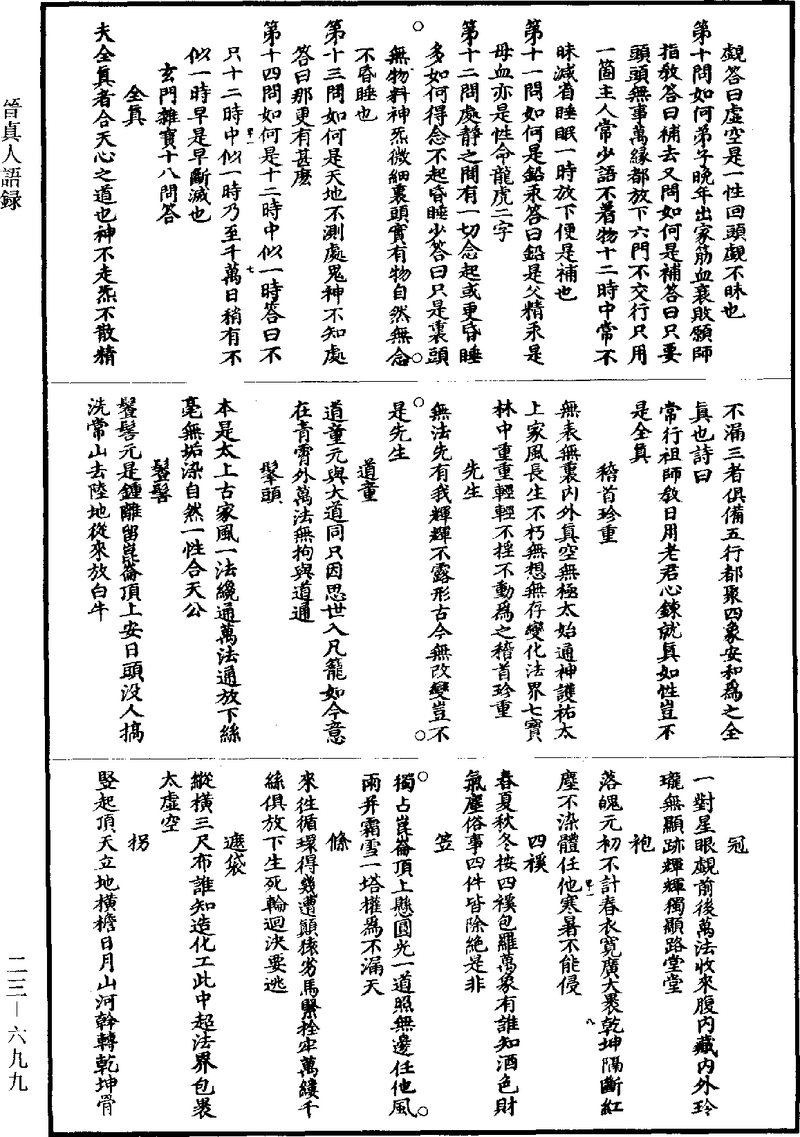 覷答曰虛空是一性回頭覷不昧也
第十問如何弟子晚年出家筋血衰敗願師
指教答曰補去又問如何是補答曰只要
頭頭無事萬緣都放下六門不交行只用
一箇主人常少語不著物十二時中常不
昧減省睡眠一時放下便是補也
第十一問如何是鉛汞答曰鉛是父精汞是
母血亦是性命龍虎二字
第十二問處靜之間有一切念起或更昏睡
多如何得念不起昏睡少答曰只是裏頭
無物料神炁微細裏頭實有物自然無念
不昏睡也
第十三問如何是天地不測處鬼神不知處
答曰那更有甚麽
第十四問如何是十二時中似一時答曰不
只十二時中似一時乃至千萬日稍有不
似一時早是早斷滅也
玄門雜寶十八問答
全真
夫全真者合天心之道也神不走炁不散精
不漏三者俱備五行都聚四象安和為之全
真也詩曰
常行祖師教日用老君心鍊就真如性豈不
是全真
稽首珍重
無表無裏內外真空無極太始通神護祐太
上家風長生不朽無想無存變化法界七寶
林中重重輕輕不搖不動為之稽首珍重
先生
無法先有我輝輝不露形古今無改變豈不
是先生
道童
道童元與大道同只因思世入凡籠如今意
在青霄外萬法無拘與道通
髽頭
本是太上古家風一法纔通萬法通放下絲
毫無垢染自然一性合天公
鬠髻
鬠髻元是鍾離留崑崙頂上安日頭没人搞
洗常山去陸地從來放白牛
冠
一對星眼覷前後萬法收來腹內藏內外玲
瓏無顯跡輝輝獨顯路堂堂
袍
落魄元初不計春衣寬廣大褁乾坤隔斷紅
塵不染體任他寒暑不能侵
四䙆
春夏秋冬按四䙆包羅萬象有誰知酒色財
氣塵俗事四件皆除絕是非
笠
獨占崑崙頂上懸圓光一道照無邊任他風
雨并霜雪一塔權為不漏天
絛
來往循環得幾遭顛猿劣馬緊拴牢萬縷千
絲俱放下生死輪迴決要逃
遮袋
縱橫三尺布誰知造化工此中超法界包褁
太虛空
拐
竪起頂天立地橫檐日月山河斡轉乾坤骨
晉真人語録
二三－六九九